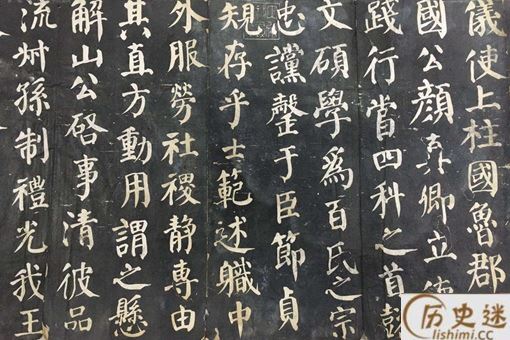 儀使上柱國魯郡
國公顏真卿立德
踐行當四科之首懿
文碩學爲百氏之宗
忠讜罄于臣節貞
規存乎士範述職中
外服勞社稷靜專由
其直方動用謂之懸
解山公啓事清彼品
流叔孫制禮光我王
历史迷
lishimi.cc